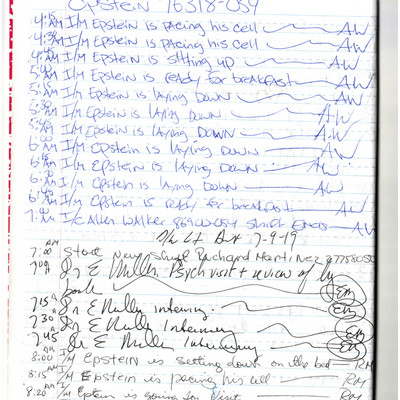 Epstein 76318-054
4:15 AM I/M Epstein is pacing his cell AW
4:30 AM I/M Epstein is pacing his cell AW
4:45 AM I/M Epstein is sitting up AW
5:00 AM I/M Epstein is ready for breakfast AW
5:15 AM I/M Epstein is laying down AW
5:30 AM I/M Epstein is laying down AW
5:45 AM I/M Epstein is laying down AW
6:00 AM I/M Epstein is laying down AW
6:15 AM I/M Epstein is laying down AW
6:30 AM I/M Epstein is laying down AW
6:45 AM I/M Epstein is ready for breakfast AW
7:00 AM I/C Allen Walker shift ends AW
7-9-19
7:00 AM Start New Shift Richard Martinez
7:09 A Dr E Miller Psych visit + review of log
book EM
7:15 A Dr E Miller EM
7:30 A Dr E Miller EM
7:45 A Dr E Miller EM
8:00 I/M Epstein is setting down on the bed RM
8:15 AM I/M Epstein is pacing his cell RM
8:20 I/M Epstein is going for Visit RM